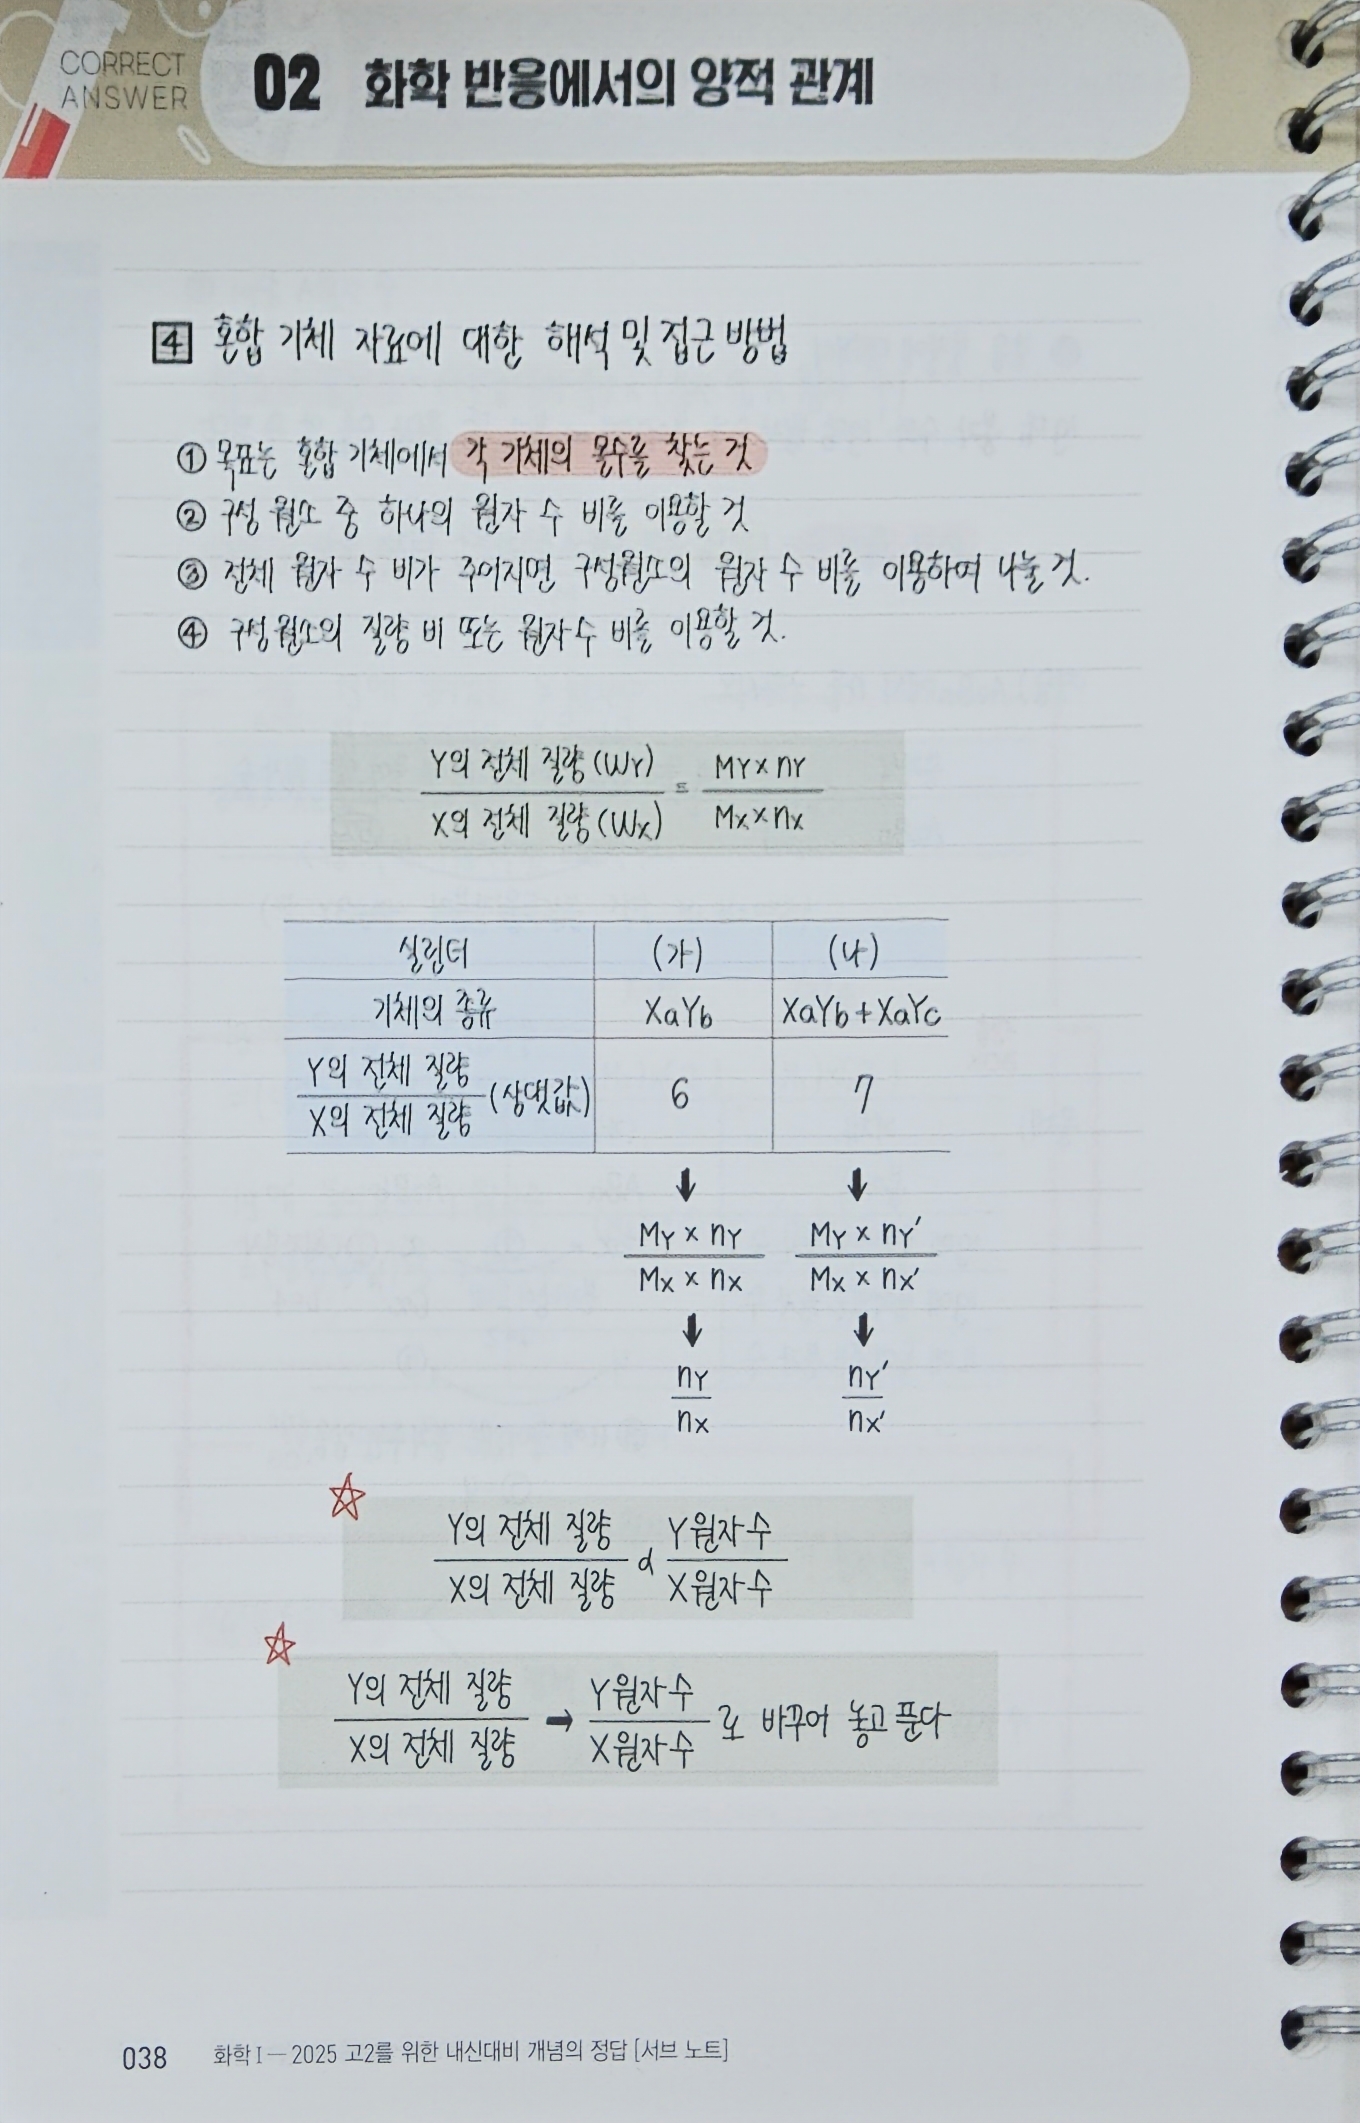 CORRECT
ANSWER
02 화학 반응에서의 양적 관계
4 혼합 기체 자료에 대한 해석 및 접근 방법
① 목표는 혼합 기체에서 각 기체의 몰수를 찾는 것
② 구성 원소 중 하나의 원자 수 비를 이용할 것
③ 전체 원자 수 비가 주어지면 구성원소의 원자 수 비를 이용하여 나눌 것.
④ 구성원소의 질량 비 또는 원자수 비를 이용할 것.
Y의 전체 질량(WY) = MY×nY
X의 전체 질량(WX) MX×nX
실린더 (가) (나)
기체의 종류 XaYb XaYb+XaYc
Y의 전체 질량
X의 전체 질량 (상댓값) 6 7
MY × nY MY × nY'
MX × nX MX × nX'
nY nY'
nX nX'
Y의 전체 질량 α Y원자수
X의 전체 질량 X원자수
Y의 전체 질량 → Y원자수 로 바꾸어 놓고 푼다
X의 전체 질량 X원자수
038 화학 I — 2025 고2를 위한 내신대비 개념의 정답 [서브 노트]